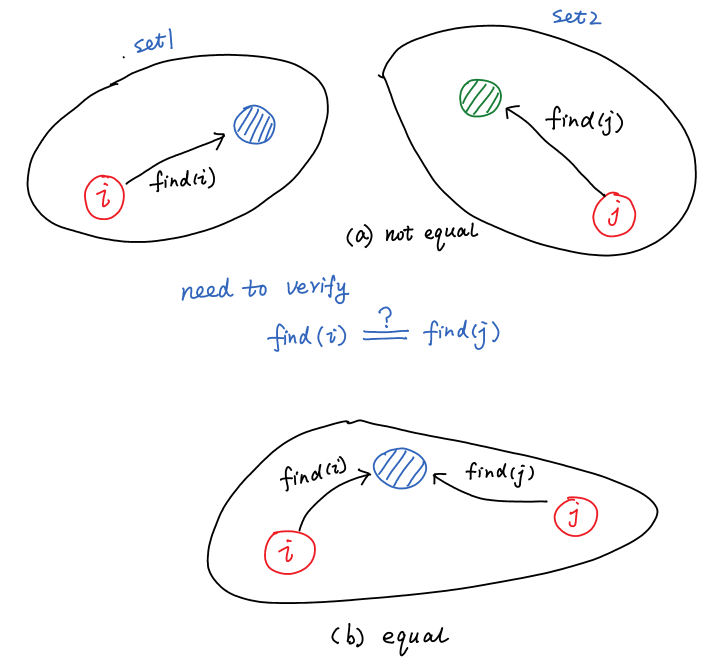 set1
set2
find(i)
i
find(j)
j
(a) not equal
need to verify
find(i) ?= find(j)
find(i)
find(j)
i
j
(b) equal